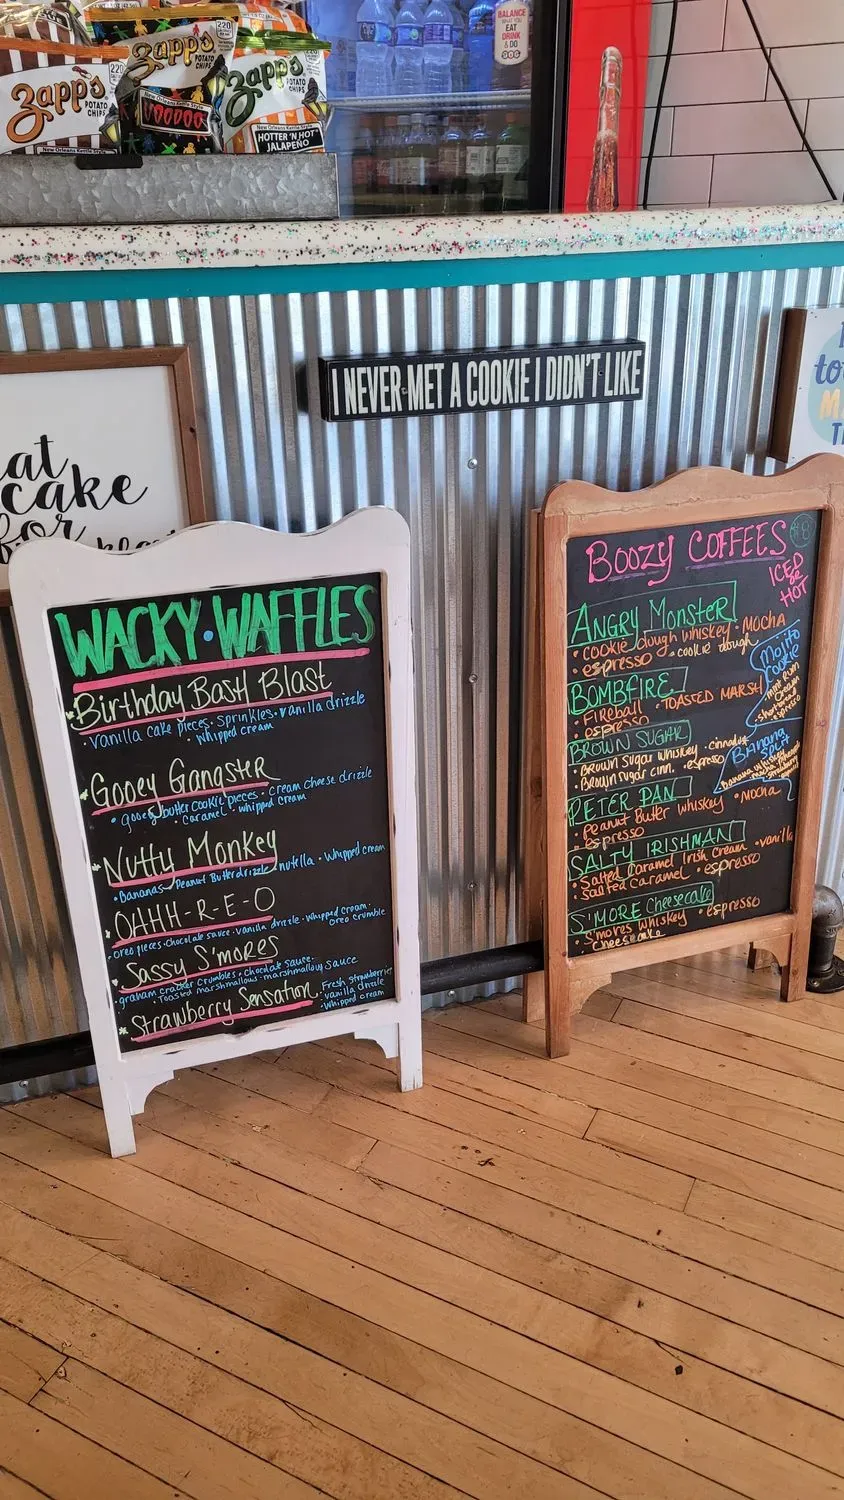 Zapp's
POTATO CHIPS
New Orleans Kettle Style
Zapp's
POTATO CHIPS
New Orleans Kettle Style
VOODOO
Zapp's
POTATO CHIPS
New Orleans Kettle Style
HOTTER 'N HOT
JALAPEÑO
BALANCE
WHAT YOU
EAT
DRINK
& DO
I NEVER MET A COOKIE I DIDN'T LIKE
at
cake
for
WACKY·WAFFLES
Birthday Bash Blast
• Vanilla cake pieces • Sprinkles • vanilla drizzle
• Whipped cream
Gooey Gangster
• gooey butter cookie pieces • cream cheese drizzle
• caramel • whipped cream
Nutty Monkey
• Bananas • Peanut Butter drizzle • nutella • Whipped cream
OAHH-R-E-O
• oreo pieces • chocolate sauce • vanilla drizzle • whipped cream •
oreo crumble
Sassy S'mores
graham cracker crumbles • chocolate sauce •
• Toasted marshmallows • marshmallow sauce
Strawberry Sensation
• Fresh strawberries
• vanilla drizzle
• Whipped cream
BOOZY COFFEES
ICED
or
HOT
ANGRY MONSTER
• cookie dough whiskey • MOCHA
• espresso • cookie dough
BOMBFIRE
• Fireball • TOASTED MARSH
• espresso
BROWN SUGAR
• Brown sugar whiskey
• Brown sugar cinn. • espresso
PETER PAN
• Peanut Butter whiskey • Mocha
• espresso
SALTY IRISHMAN
• Salted Caramel Irish Cream • vanilla
• salted caramel • espresso
S'MORE Cheesecake
• S'mores Whiskey • espresso
• cheesecake
Mojito
Cookie
BANANA
SPLIT